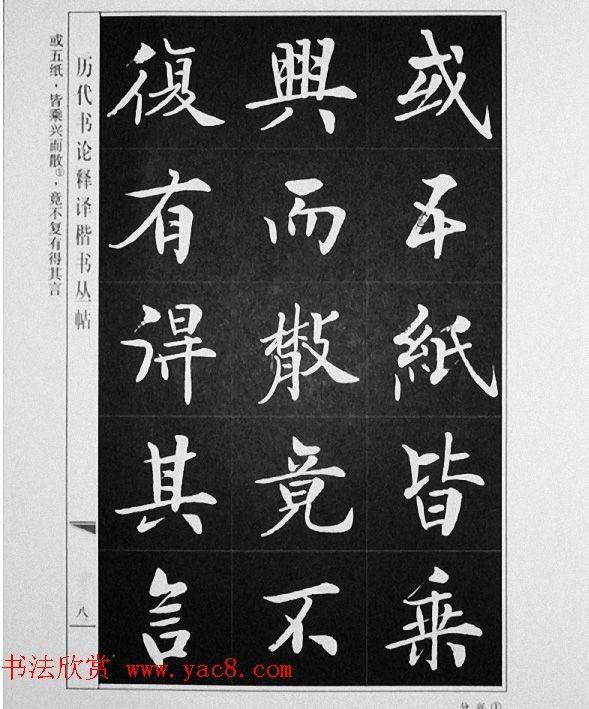 或五紙皆乗
興而散竟不
復有得其言
历代书论释译楷书丛帖
八
或五纸，皆乘兴而散①，竟不复有得其言
书法欣赏 www.yac8.com